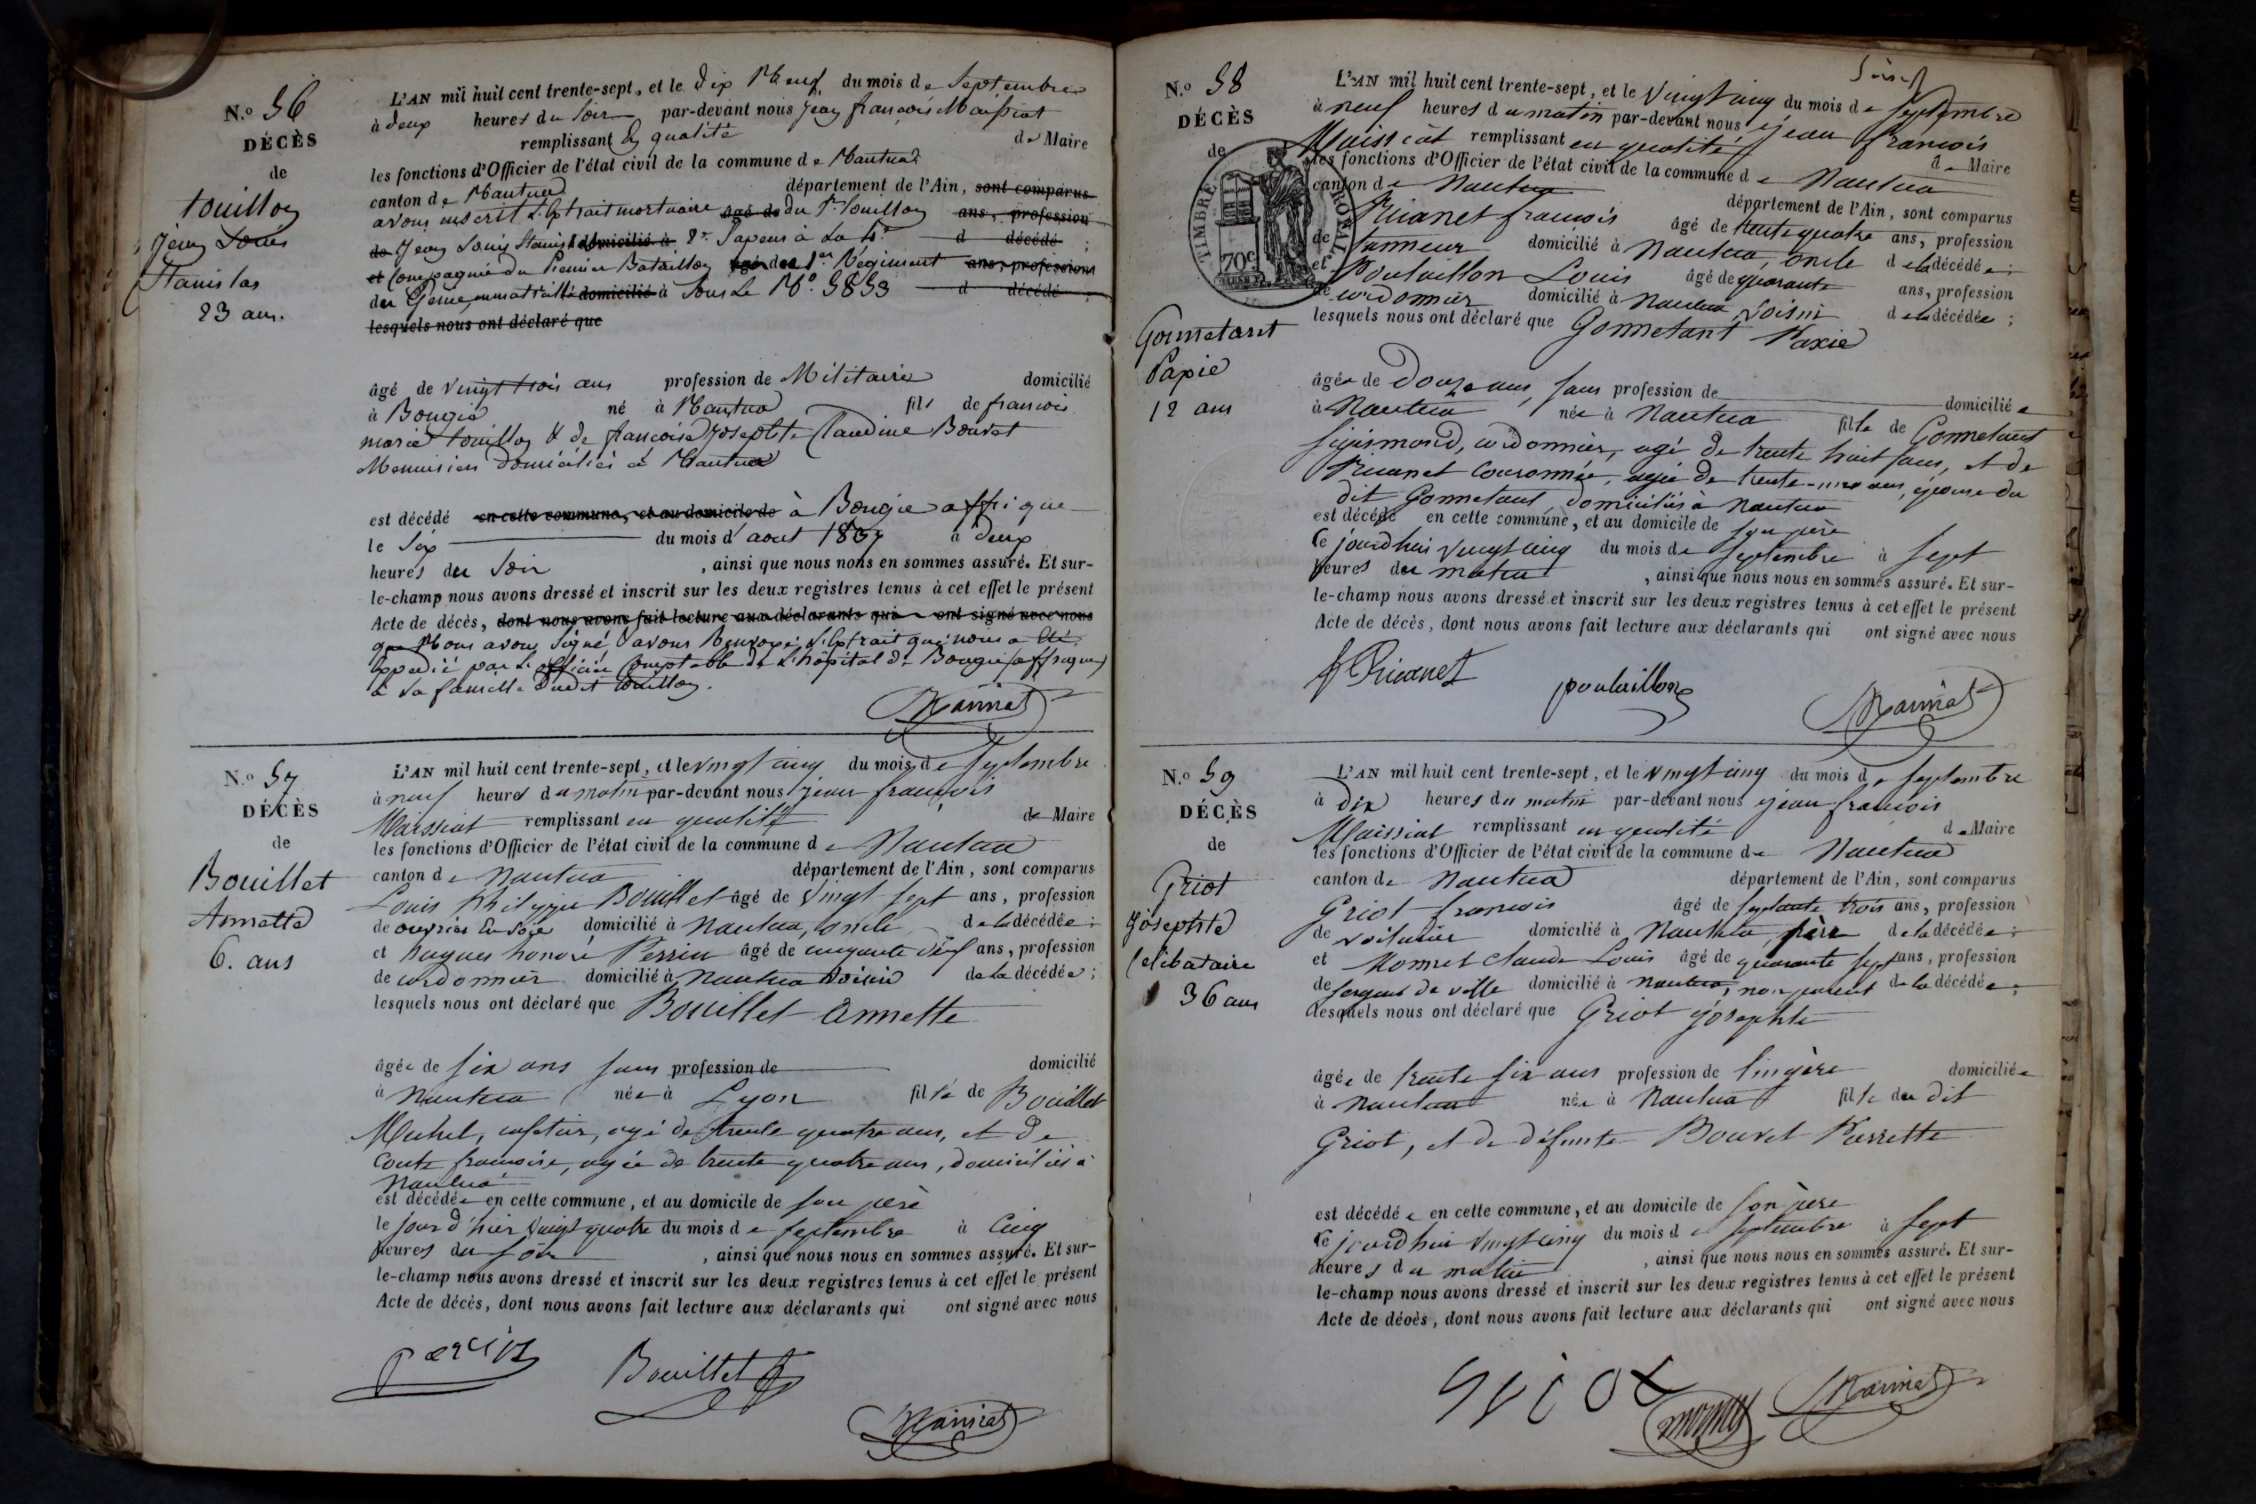 N.o 56
DÉCÈS
de
touillon
Jean Louis
Stanislas
23 ans.
L'AN mil huit cent trente-sept, et le dix Neuf du mois de Septembre
à deux heures du Soir par-devant nous Jean françois Maissiat
remplissant En qualité de Maire
les fonctions d'Officier de l'état civil de la commune de Nantua
canton de Nantua département de l'Ain, sont comparus
avons inscrit L'Extrait mortuaire âgé de du Sr. touillon ans, profession
de Jean Louis Stanislas domicilié à 2e. Sapeur à La 4e. d décédé ;
et Compagnie du Premier Bataillon âgé de du 1er Régiment ans, profession
du Génie, immatriculé domicilié à Sous Le No. 5853 d décédé ;
lesquels nous ont déclaré que
âgé de vingt trois ans profession de Militaire domicilié
à Bougie né à Nantua fils de francois
marie touillon & de françoise Josephte Claudine Bouvet
Menuisier domiciliés à Nantua
est décédé en cette commune, et au domicile de à Bougie affrique
le Six du mois d'aout 1837 à deux
heures du Soir , ainsi que nous nous en sommes assuré. Et sur-
le-champ nous avons dressé et inscrit sur les deux registres tenus à cet effet le présent
Acte de décès, dont nous avons fait lecture aux déclarants qui ont signé avec nous
que Nous avons Signé avons Renvoyé L'Extrait qui nous a été
Expédié par L'officier Comptable de L'hôpital de Bougie (affrique)
à Sa famille dudit touillon.
Maissiat
N.o 57
DÉCÈS
de
Bouillet
Annette
6. ans
L'AN mil huit cent trente-sept, et le vingt cinq du mois de Septembre
à neuf heures du matin par-devant nous Jean françois
Maissiat remplissant en qualité de Maire
les fonctions d'Officier de l'état civil de la commune de Nantua
canton de Nantua département de l'Ain, sont comparus
Louis Philippe Bouillet âgé de Vingt sept ans, profession
de ouvrier En Soie domicilié à Nantua, oncle de la décédée ;
et hugues honoré Perrin âgé de cinquante neuf ans, profession
de cordonnier domicilié à Nantua Voisin de la décédée ;
lesquels nous ont déclaré que Bouillet Annette
âgée de six ans sans profession de domicilié
à Nantua née à Lyon fille de Bouillet
Michel, cafetier, agé de trente quatre ans, et de
Conte francoise, agée de trente quatre ans, domiciliés à
Nantua
est décédée en cette commune, et au domicile de son père
le jour d'hier Vingt quatre du mois de septembre à Cinq
heures du soir , ainsi que nous nous en sommes assuré. Et sur-
le-champ nous avons dressé et inscrit sur les deux registres tenus à cet effet le présent
Acte de décès, dont nous avons fait lecture aux déclarants qui ont signé avec nous
perrin
Bouillet
Maissiat
N.o 58
DÉCÈS
de
TIMBRE ROYAL
70c
Gonnetant
Papie
12 ans
L'AN mil huit cent trente-sept, et le Vingt cinq du mois de Septembre
à neuf heures du matin par-devant nous Jean francois
Maissiat remplissant en qualité de Maire
les fonctions d'Officier de l'état civil de la commune de Nantua
canton de Nantua département de l'Ain, sont comparus
françois âgé de trente quatre ans, profession
de tanneur domicilié à Nantua, oncle de la décédée ;
et Poulaillon Louis âgé de quarante ans, profession
de cordonnier domicilié à Nantua, Voisin de la décédée ;
lesquels nous ont déclaré que Gonnetant
âgée de Douze ans, sans profession de domiciliée
à Nantua née à Nantua fille de Gonnetant
Sigismond, cordonnier, agé de trente huit ans, et de
Couronnée, agée de trente-une ans, épouse du
dit Gonnetant, domiciliés à Nantua
est décédé en cette commune, et au domicile de son père
Ce jourd'hui Vingt cinq du mois de septembre à sept
heures du matin , ainsi que nous nous en sommes assuré. Et sur-
le-champ nous avons dressé et inscrit sur les deux registres tenus à cet effet le présent
Acte de décès, dont nous avons fait lecture aux déclarants qui ont signé avec nous
poulaillon
Maissiat
N.o 59
DÉCÈS
de
Griot
Josephte
Célibataire
36 ans
L'AN mil huit cent trente-sept, et le vingt cinq du mois de septembre
à dix heures du matin par-devant nous Jean francois
Maissiat remplissant en qualité de Maire
les fonctions d'Officier de l'état civil de la commune de Nantua
canton de Nantua département de l'Ain, sont comparus
Griot francois âgé de septante trois ans, profession
de voiturier domicilié à Nantua, père de la décédée ;
et Monnet Claude Louis âgé de quarante sept ans, profession
de sergent de ville domicilié à Nantua, non parent de la décédée ;
lesquels nous ont déclaré que Griot Josephte
âgée de trente six ans profession de lingère domiciliée
à Nantua née à Nantua fille du dit
Griot, et de défunte Bouvet Pierrette
est décédée en cette commune, et au domicile de son père
Ce jourd'hui vingt cinq du mois de septembre à sept
heures du matin , ainsi que nous nous en sommes assuré. Et sur-
le-champ nous avons dressé et inscrit sur les deux registres tenus à cet effet le présent
Acte de décès, dont nous avons fait lecture aux déclarants qui ont signé avec nous
Griot
monnet
Maissiat